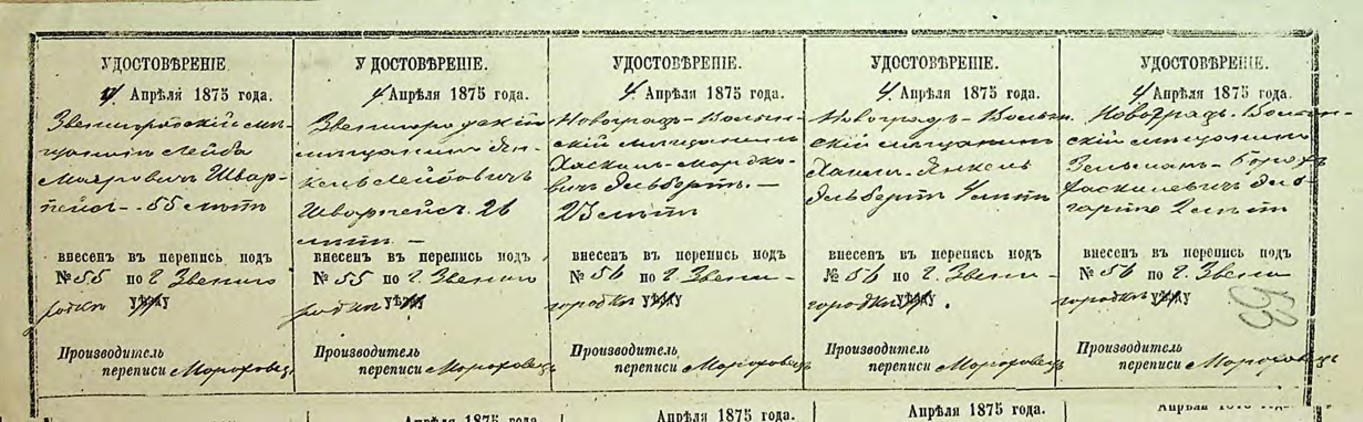 УДОСТОВѢРЕНІЕ
4 Апрѣля 1875 года.
Звенигородскій мѣ-
щанинъ Лейба
Маіровичъ Швар-
пейсъ - 55 лѣтъ
внесенъ въ перепись подъ
№ 55 по г. Звениго
родкѣ уѣзду
Производитель
переписи Мороховецъ
УДОСТОВѢРЕНІЕ.
4 Апрѣля 1875 года.
Звенигородскій
мѣщанинъ Ян-
кель Лейбовичъ
Шварпейсъ 26
лѣтъ -
внесенъ въ перепись подъ
№ 55 по г. Звениго
родкѣ уѣзду
Производитель
переписи Мороховецъ
УДОСТОВѢРЕНІЕ.
4 Апрѣля 1875 года.
Новоградъ-Волын-
скій мѣщанинъ
Хаскель-Мордко-
вичъ Эльбертъ. -
23 лѣтъ
внесенъ въ перепись подъ
№ 56 по г. Звени-
городкѣ уѣзду
Производитель
переписи Мороховецъ
УДОСТОВѢРЕНІЕ.
4 Апрѣля 1875 года.
Новоградъ-Волын.
скій мѣщанинъ
Янкель
Эльбертъ 4 лѣтъ
внесенъ въ перепись подъ
№ 56 по г. Звени-
городкѣ уѣзду.
Производитель
переписи Мороховецъ
УДОСТОВѢРЕНІЕ.
4 Апрѣля 1875 года.
Новоградъ-Волын-
скій мѣщанинъ
Зельманъ-Борохъ
Хаскилевичъ
2 лѣтъ
внесенъ въ перепись подъ
№ 56 по г. Звени
городкѣ уѣзду
Производитель
переписи Мороховецъ
Апрѣля 1875 года.
Апрѣля 1875 года.
Апрѣля 1875 года.